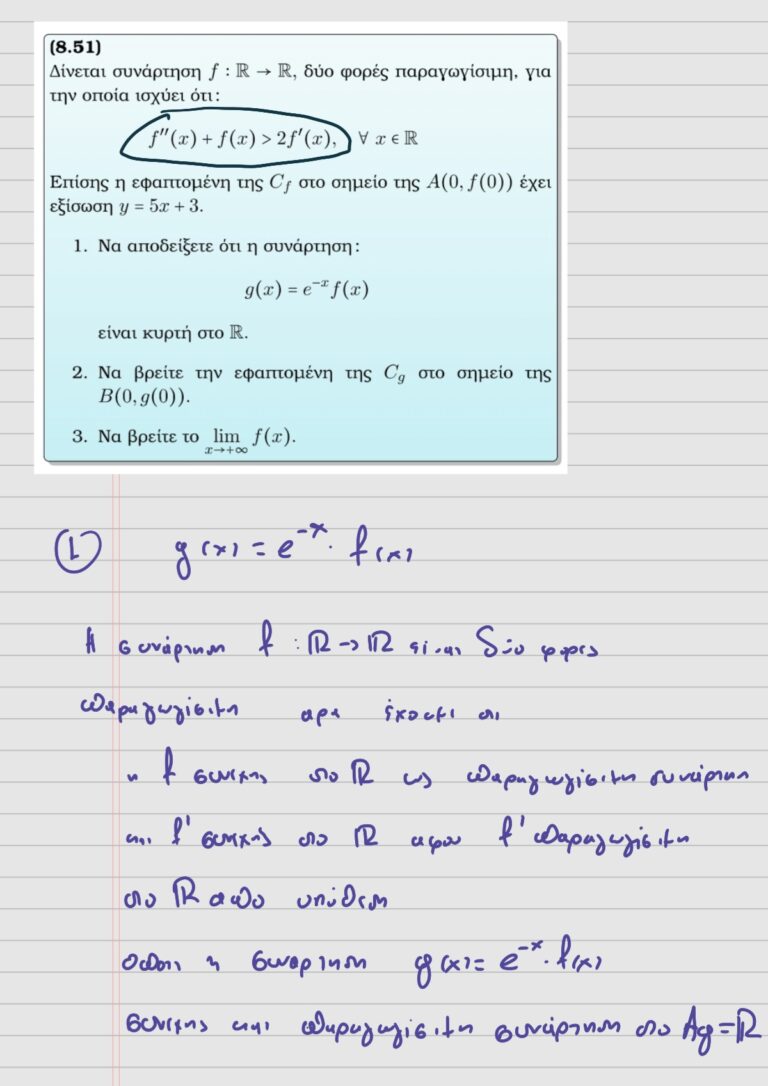 (8.51)
Δίνεται συνάρτηση f : ℝ → ℝ, δύο φορές παραγωγίσιμη, για
την οποία ισχύει ότι:
f''(x) + f(x) > 2f'(x), ∀ x ∈ ℝ
Επίσης η εφαπτομένη της C_f στο σημείο της A(0, f(0)) έχει
εξίσωση y = 5x + 3.
1. Να αποδείξετε ότι η συνάρτηση:
g(x) = e^{-x} f(x)
είναι κυρτή στο ℝ.
2. Να βρείτε την εφαπτομένη της C_g στο σημείο της
B(0, g(0)).
3. Να βρείτε το lim_{x→+∞} f(x).
① g(x) = e^{-x} · f(x)
Η συνάρτηση f : ℝ → ℝ είναι δύο φορες
παραγωγίσιμη αρα έχουμε οτι
η f συνεχης στο ℝ ως παραγωγίσιμη συνάρτηση
και f' συνεχής στο ℝ αφου f' παραγωγίσιμη
στο ℝ απο υπόθεση
οποτε η συναρτηση g(x) = e^{-x} · f(x)
συνεχης και παραγωγίσιμη συνάρτηση στο Ag = ℝ